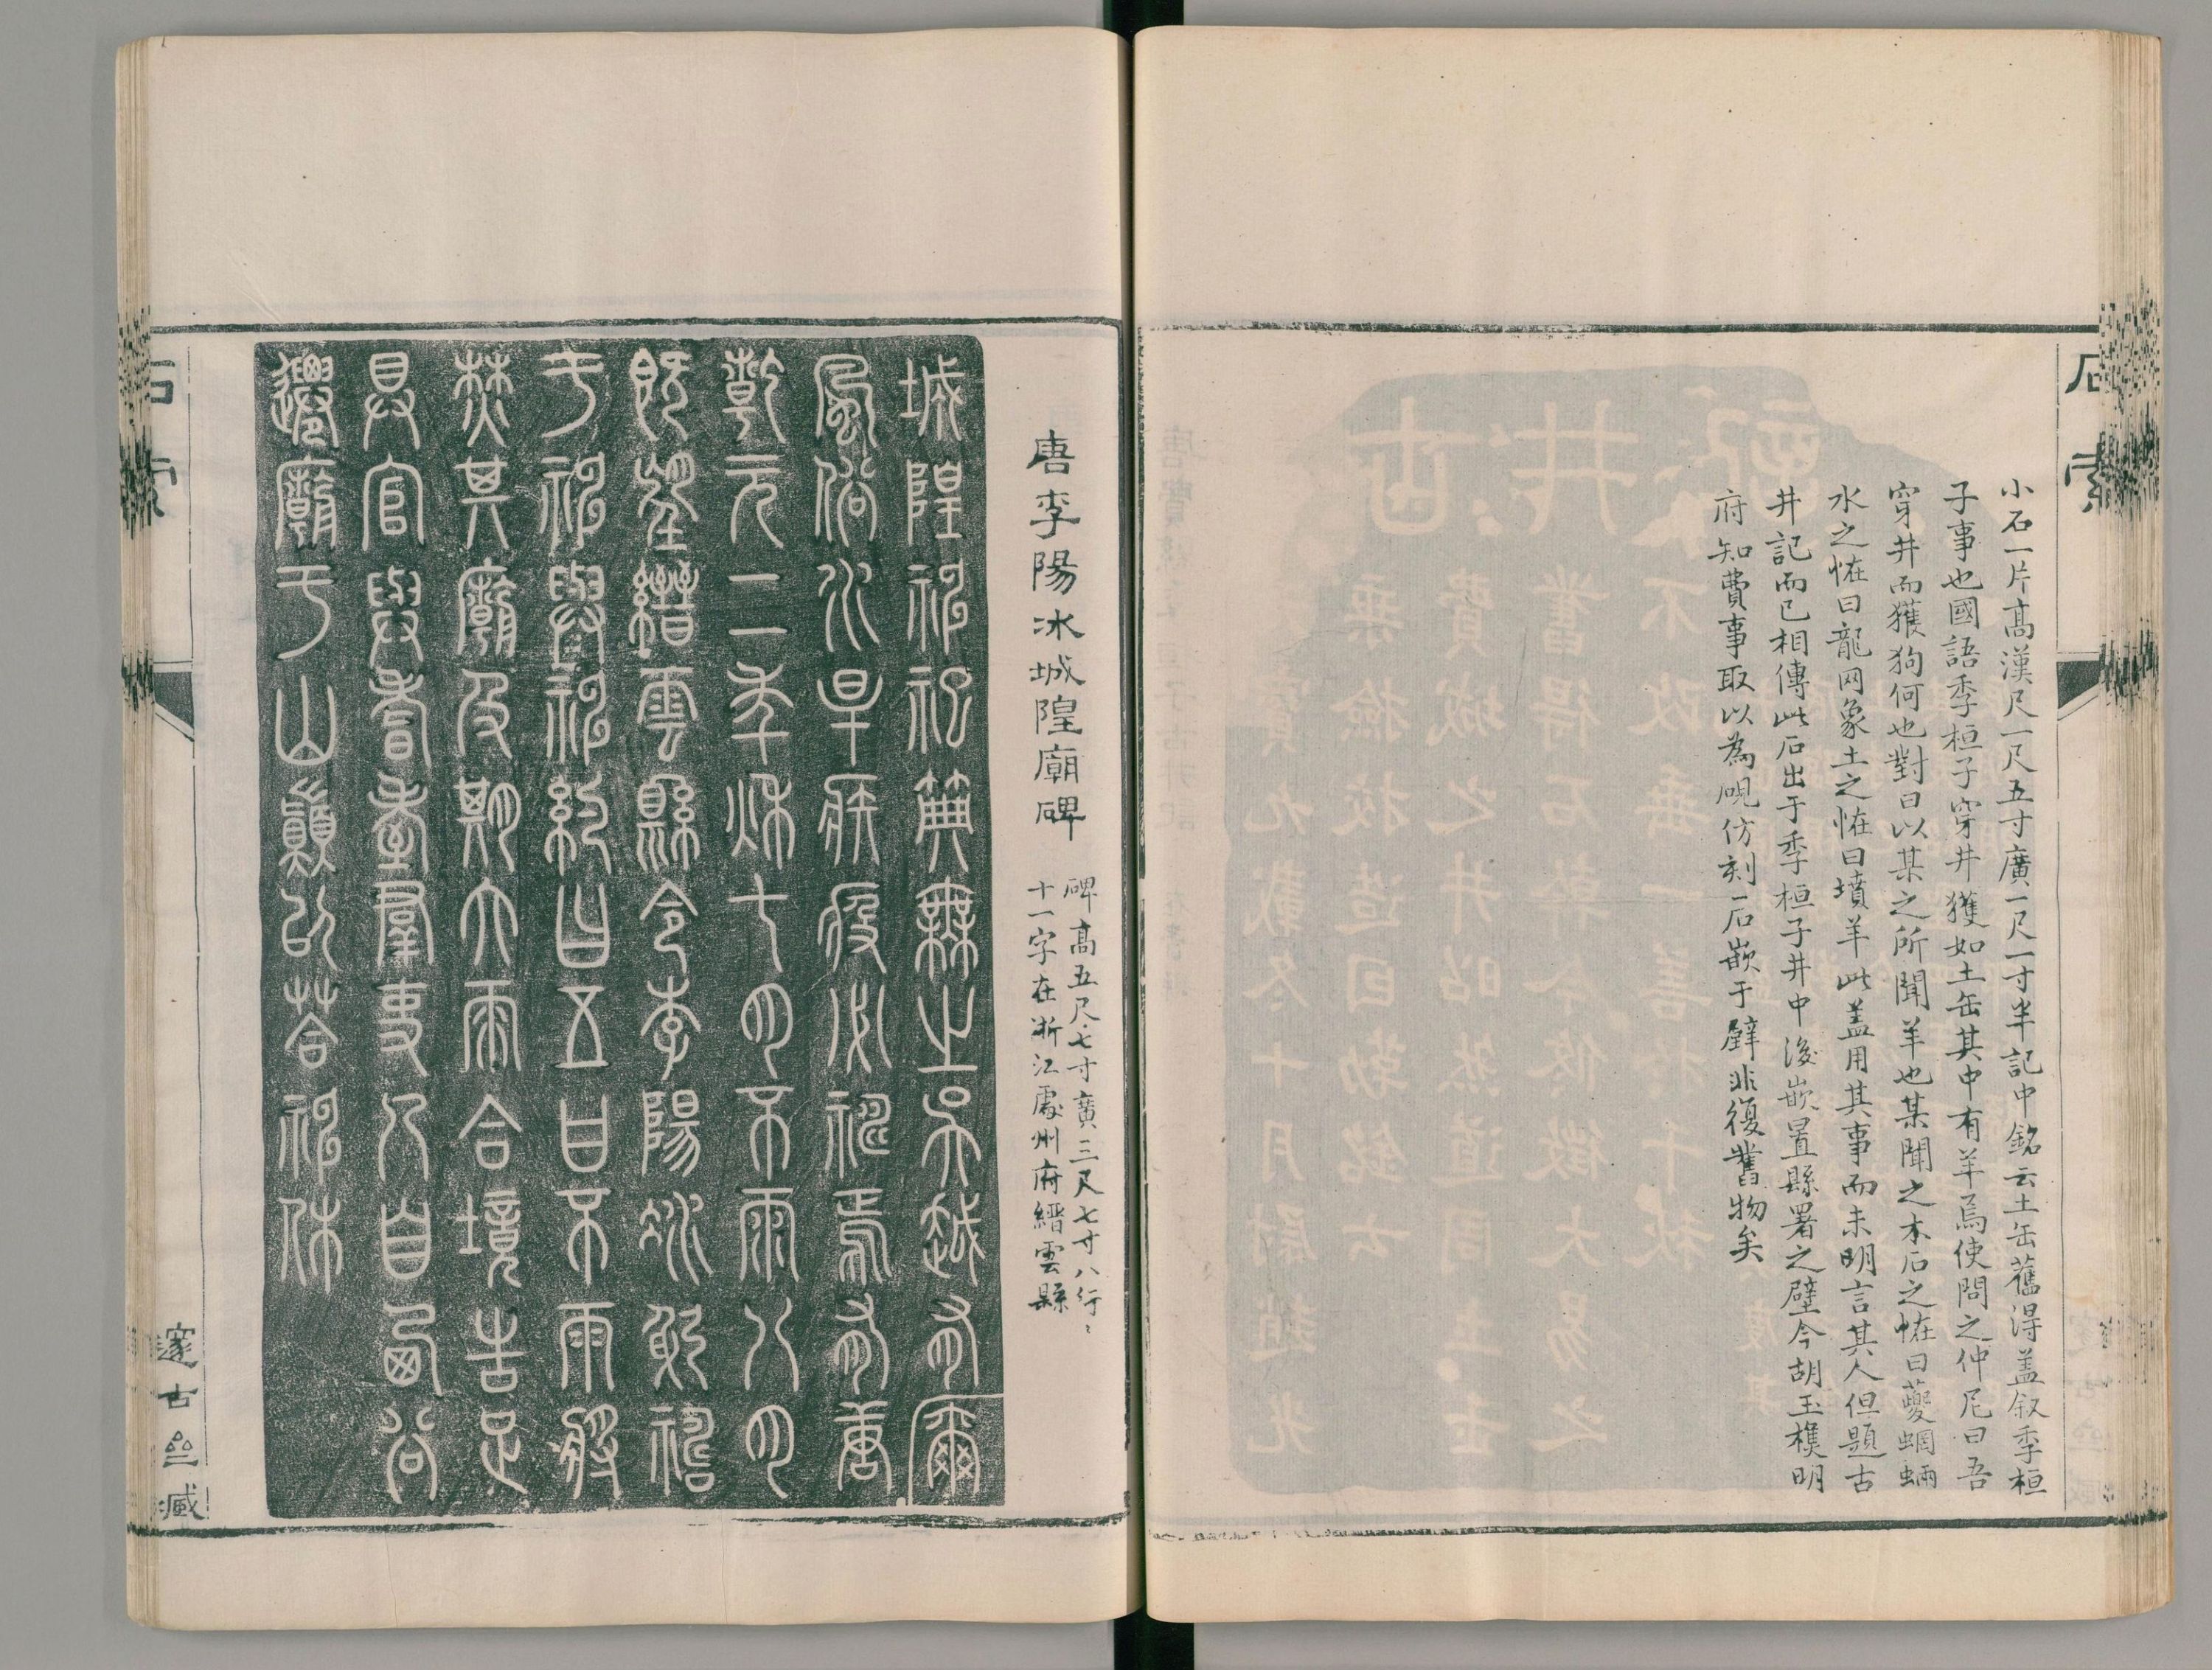 石索
小石一片高漢尺一尺五寸廣一尺一寸半記中銘云土缶舊得盖叙季桓
子事也國語季桓子穿井獲如土缶其中有羊焉使問之仲尼曰吾
穿井而獲狗何也對曰以某之所聞羊也某聞之木石之恠曰夔蝄蜽
水之恠曰龍网象土之恠曰墳羊此盖用其事而未明言其人但題古
井記而已相傳此石出于季桓子井中後嵌置縣署之壁今胡玉樵明
府知費事取以為硯仿刻一石嵌于壁非復舊物矣
唐李陽冰城隍廟碑
碑高五尺七寸廣三尺七寸八行〻
十一字在浙江處州府縉雲縣
城隍神祀典無之吳越有爾
風俗水旱疾疫必禱焉有唐
乾元二年秋七月不雨八月
既望縉雲縣令李陽冰躬禱
于神與神約曰五日不雨將
焚其廟及期大雨合境告足
具官與耆耋群吏乃自西谷
遷廟于山巔以荅神休
石索
邃古叄臧